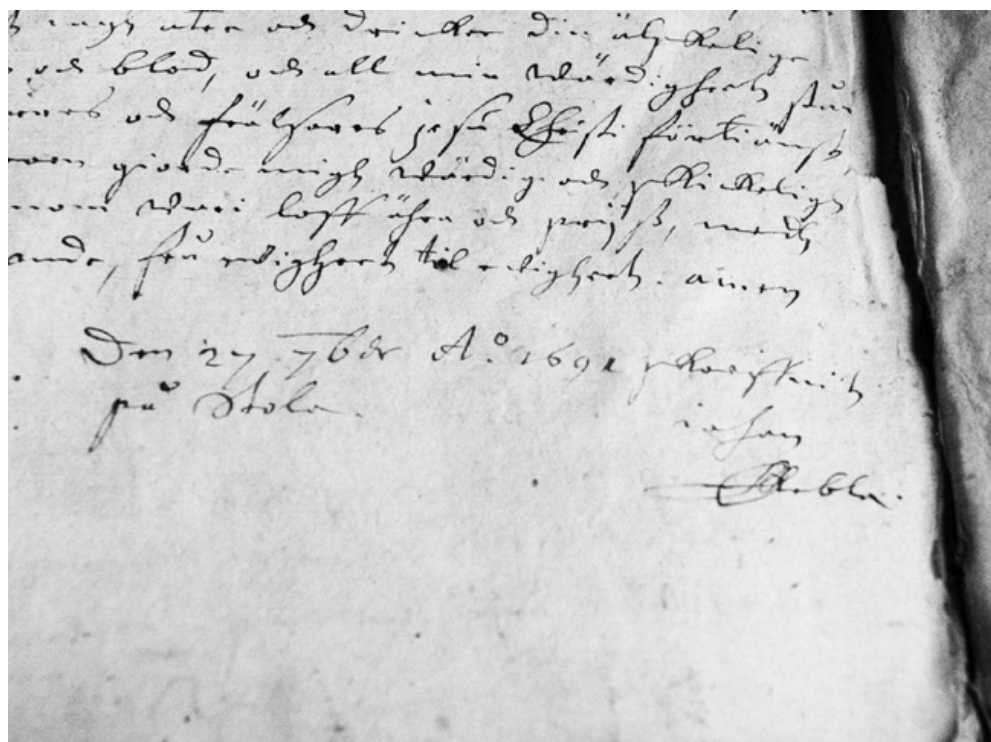 migh äter och dricker din älskelige
och blod, och all min wärdigheet
och frälsares jesu Christi förtiänst,
giorde migh wärdig och skickeligh
wari loff ähra och prijss, medh
ande, frå ewigheet til ewigheet. amen
Den 27 7br Ao 1691 skreffwit
på Stola
iohan
Ekebla.